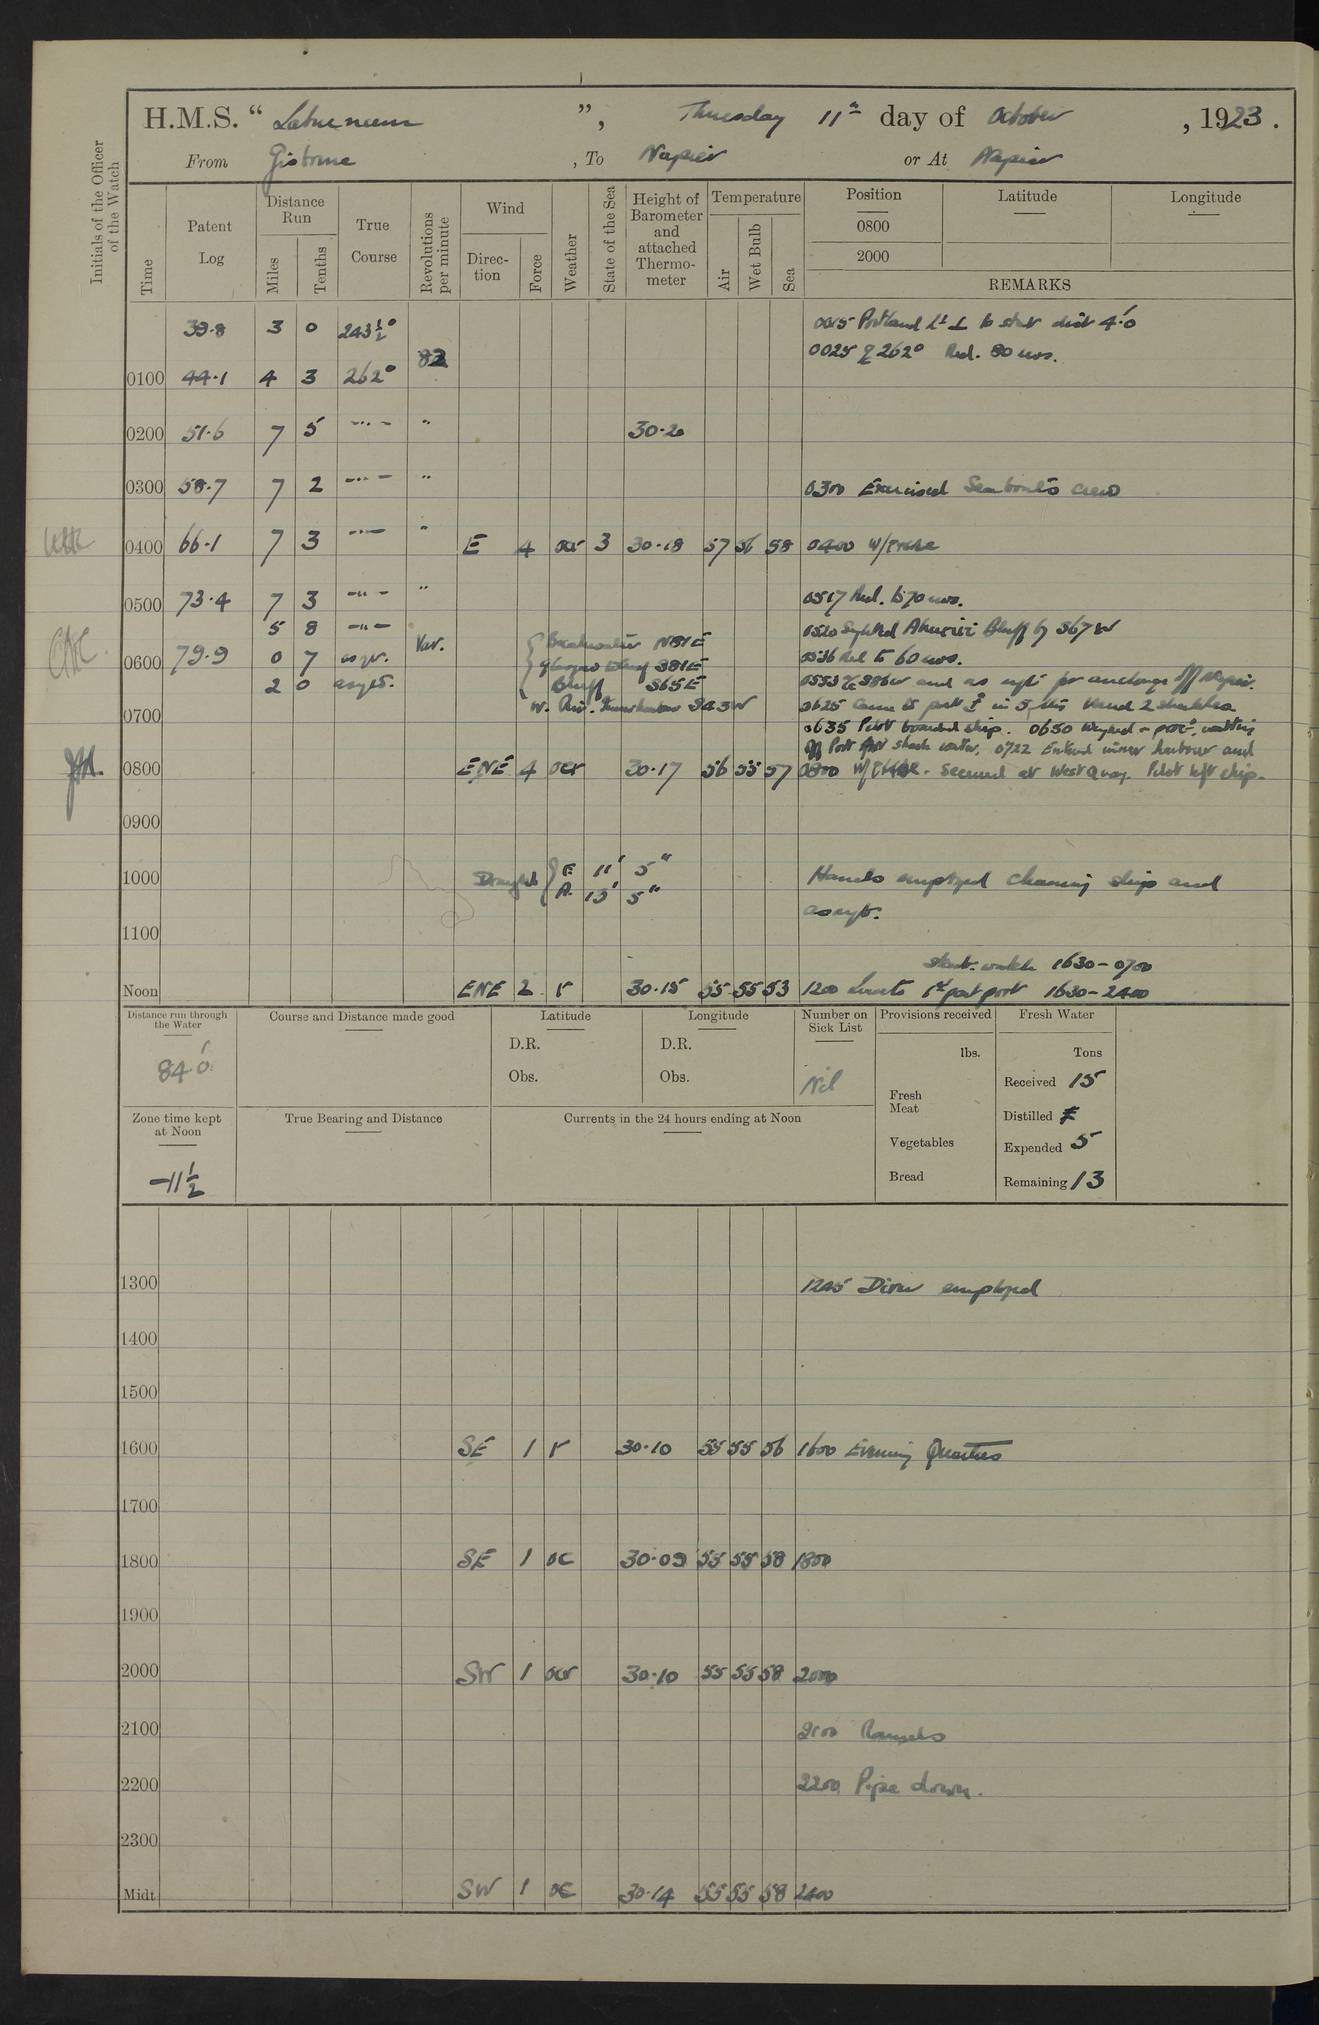 H.M.S. “ Laburnum ”, Thursday 11th day of October, 1923.
From Gisborne, To Napier or At Napier
Initials of the Officer of the Watch
Time
Patent Log
Distance Run
Miles
Tenths
True Course
Revolutions per minute
Wind
Direc-tion
Force
Weather
State of the Sea
Height of Barometer and attached Thermo-meter
Temperature
Air
Wet Bulb
Sea
Position
Latitude
Longitude
0800
2000
REMARKS
39.8 3 0 243½° 0015 Portland Lt ⊥ to stbd dist 4.'0
82 0025 262° Red. 80 revs.
0100 44.1 4 3 262°
0200 51.6 7 5 -"- " 30.20
0300 58.7 7 2 -"- " 0300 Exercised Seaboat's crew
0400 66.1 7 3 -"- " E 4 ocr 3 30.18 57 56 58 0400
0500 73.4 7 3 -"- " 0517 Red. to 70 revs.
5 8 -"- 0520 Sighted Ahuriri Bluff S67W
0600 79.9 0 7 as req. Var. Breakwater N81E 0536 Red to 60 revs.
2 0 as reqd. Glasgow Wharf S81E 0553 S86W and as reqte for anchorage off Napier.
Bluff S65E
0700 W. Pier. Inner harbour S43W 0625 Came to port in 5 fms Veered 2 shackles
0635 Pilot boarded ship. 0650 Weighed & proc. waiting
off Port for slack water. 0722 Entered inner harbour and
0800 ENE 4 ocr 30.17 56 55 57 0800 Secured at West Quay. Pilot left ship.
0900
1000 Draught F. 11' 5" Hands employed cleaning ship and
A. 13' 5" as reqte.
1100
Stbd. watch 1630-0700
Noon ENE 2 r 30.15 55 55 53 1200 Leave to 1st part port 1630-2400
Distance run through the Water
84.'0
Course and Distance made good
Latitude
D.R.
Obs.
Longitude
D.R.
Obs.
Number on Sick List
Nil
Provisions received
lbs.
Fresh Meat
Vegetables
Bread
Fresh Water
Tons
Received 15
Distilled
Expended 5
Remaining 13
Zone time kept at Noon
-11½
True Bearing and Distance
Currents in the 24 hours ending at Noon
1300 1245 Diver employed
1400
1500
1600 SE 1 r 30.10 55 55 56 1600 Evening Quarters
1700
1800 SE 1 oc 30.09 55 55 58 1800
1900
2000 SW 1 ocr 30.10 55 55 58 2000
2100 2100 Rounds
2200 2200 Pipe down.
2300
Midt SW 1 oc 30.14 55 55 58 2400